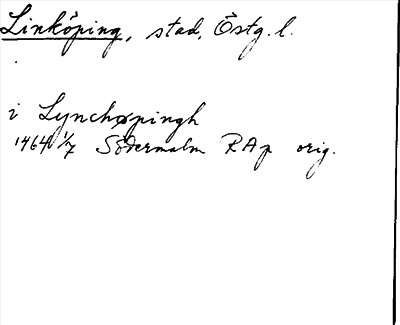 Linköping, stad, Östg. l.
i Lynchøpingh
1464 1/7 Södermalm RAp orig.